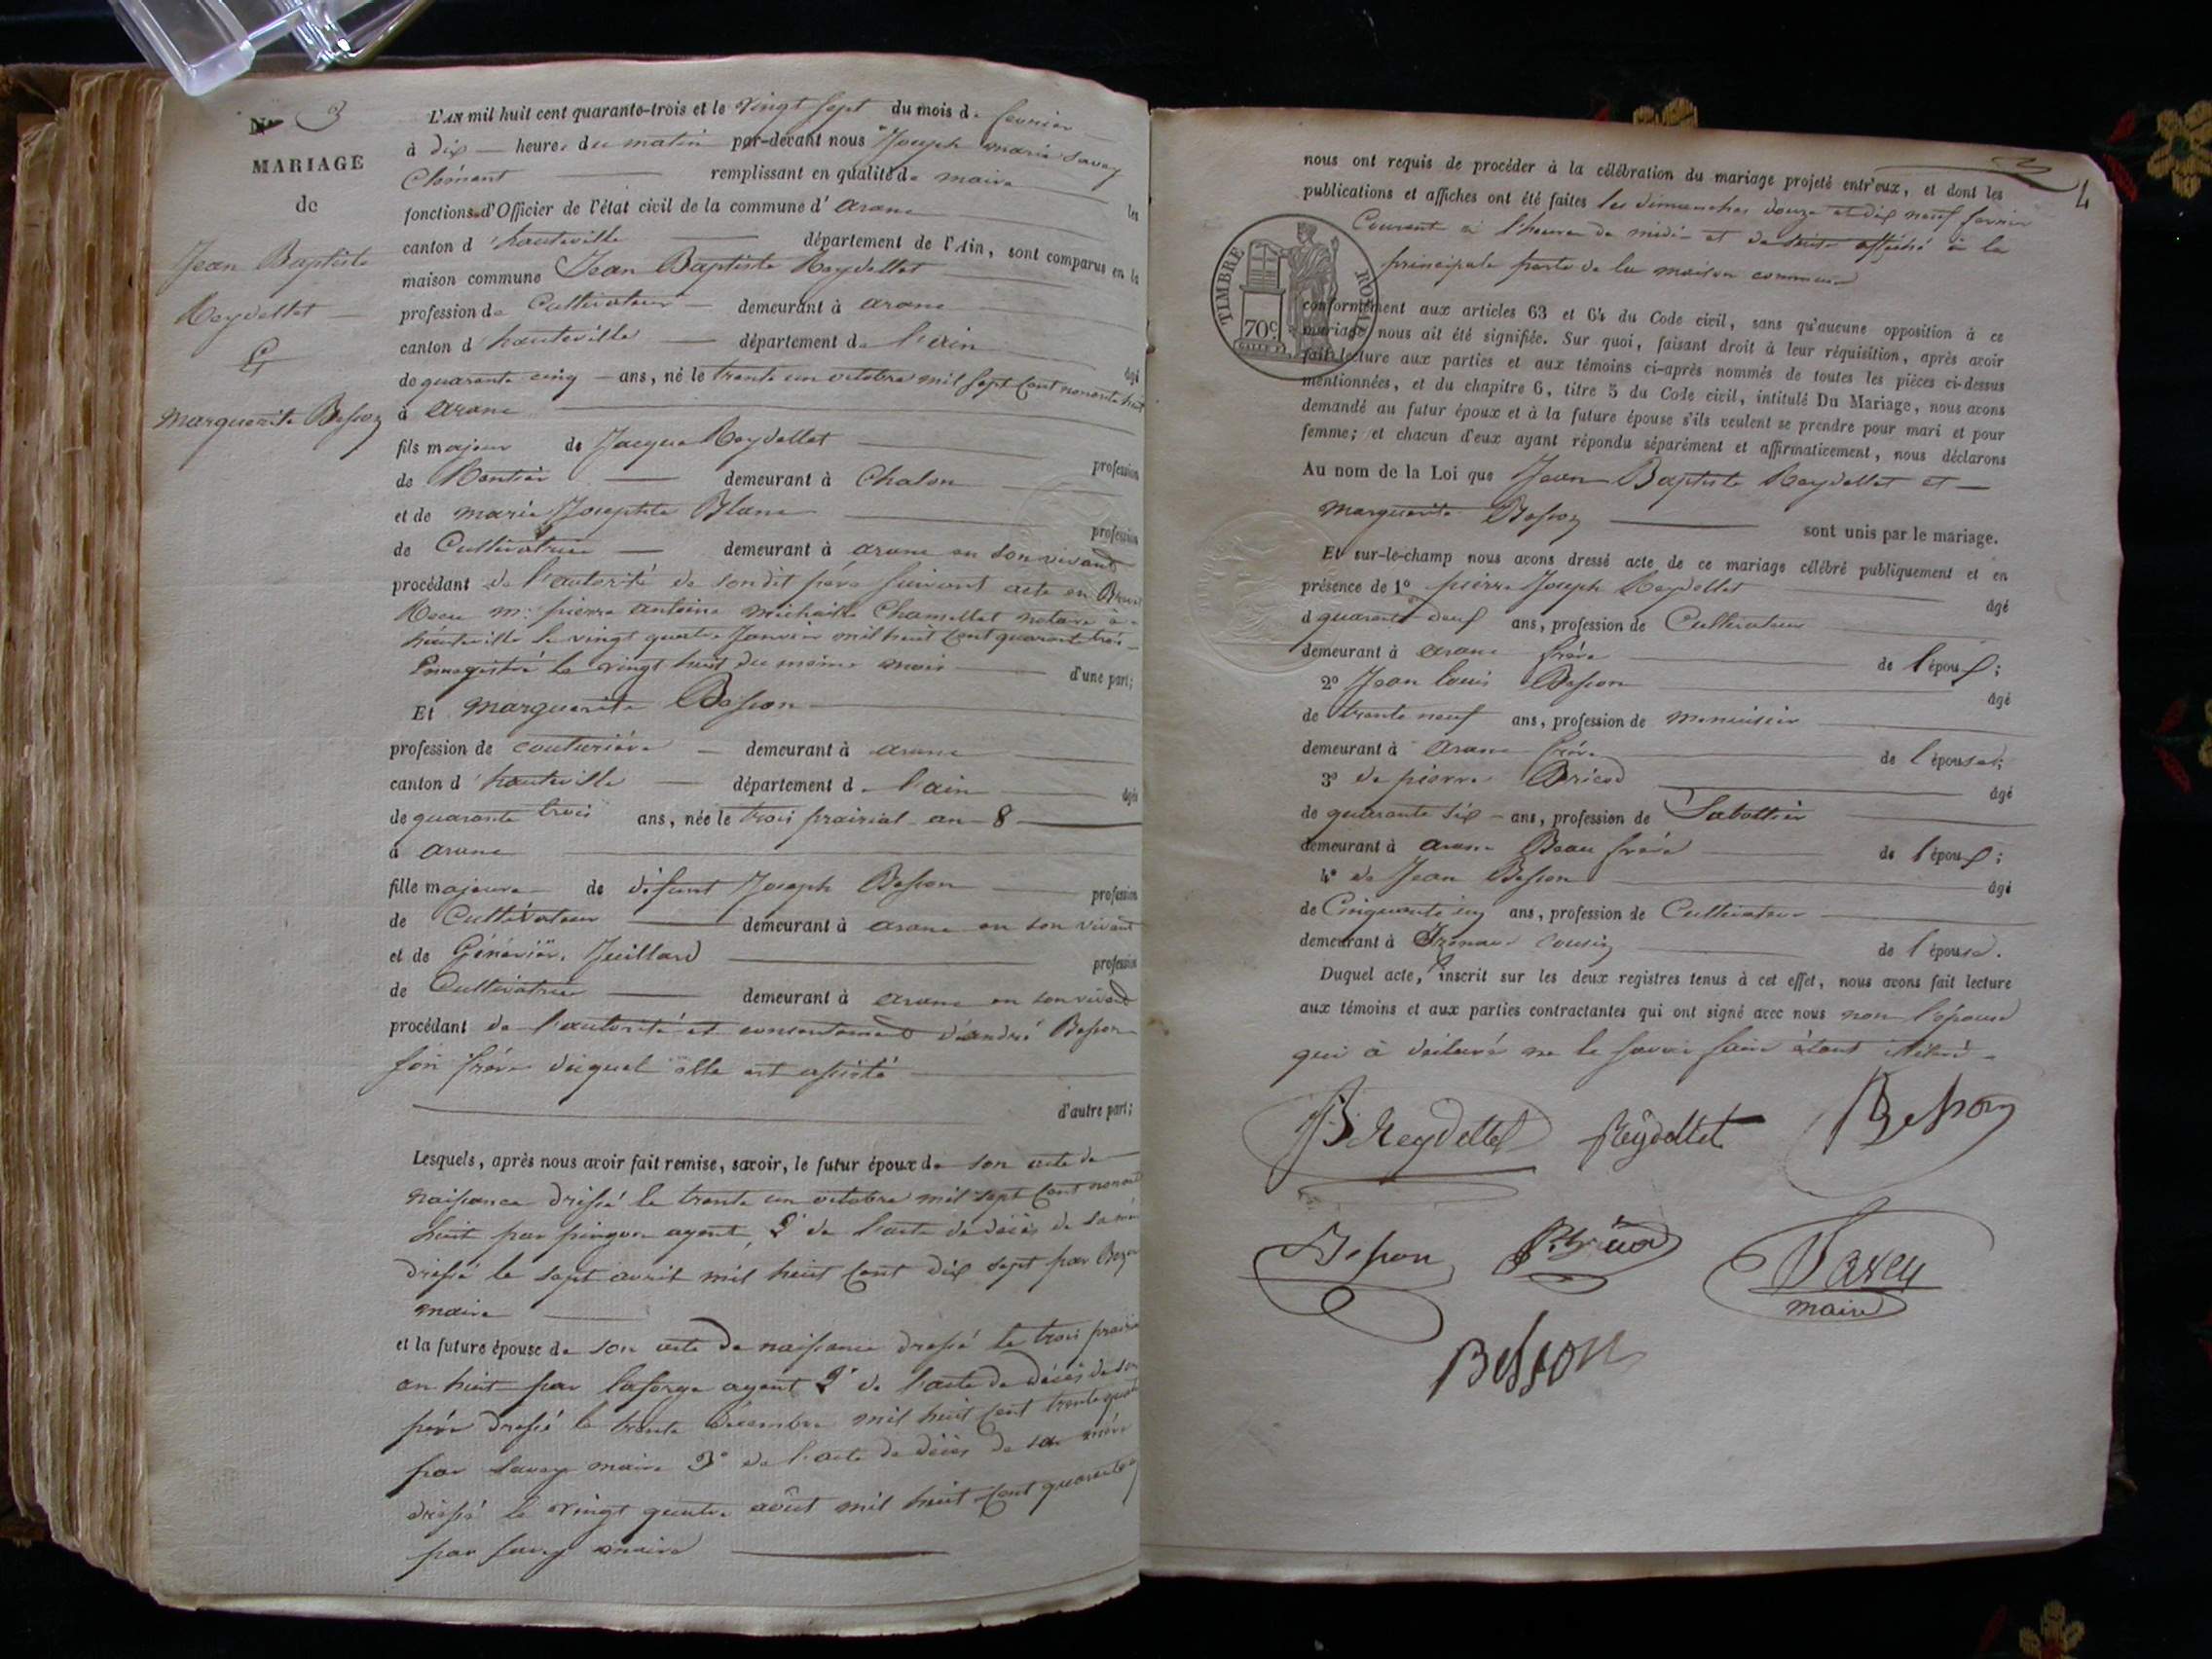 N° 3
MARIAGE
de
Jean Baptiste
Reydellet
Et
Marguerite Besson
L'AN mil huit cent quarante-trois et le vingt sept du mois de fevrier
à dix heures du matin par-devant nous Joseph marie Savey
Clément remplissant en qualité de maire les
fonctions d'Officier de l'état civil de la commune d'arane
canton d'hauteville département de l'Ain, sont comparus en la
maison commune Jean Baptiste Reydellet
profession de Cultivateur demeurant à arane
canton d'hauteville département de l'ain âgé
de quarante cinq ans, né le trente un octobre mil sept cent nonante huit
à arane
fils majeur de Jacque Reydellet profession
de Rentier demeurant à Chalon
et de marie Josephte Blanc profession
de Cultivatrice demeurant à arane en son vivant
procédant de l'autorité de son dit père suivant acte en Brevet
Recu m. pierre antoine michaille Chamellet notaire à
hauteville le vingt quatre Janvier mil huit cent quarante trois
Enregistré le vingt huit du même mois d'une part;
Et Marguerite Besson
profession de couturière demeurant à arane
canton d'hauteville département de l'ain âgée
de quarante trois ans, née le trois prairial an 8
à arane
fille majeure de défunt Joseph Besson profession
de Cultivateur demeurant à arane en son vivant
et de Génévièv. Juillard profession
de Cultivatrice demeurant à arane en son vivant
procédant de l'autorité et consentement d'andré Besson
son frère duquel elle est assisté
d'autre part;
Lesquels, après nous avoir fait remise, savoir, le futur époux de son acte de
naissance dressé le trente un octobre mil sept cent nonante
huit par pingon agent, 2° de l'acte de décès de sa mère
dressé le sept avril mil huit cent dix sept par
maire
et la future épouse de son acte de naissance dressé le trois prairial
an huit par laforge agent 2° de l'acte de décès de son
père dressé le trente décembre mil huit cent trente quatre
par Savey maire 3° de l'acte de décès de sa mère
dressé le vingt quatre août mil huit cent quarante
par Savey maire
4
nous ont requis de procéder à la célébration du mariage projeté entr'eux, et dont les
publications et affiches ont été faites les dimanches douze et dix neuf fevrier
Courant à l'heure de midi et de suite affiché à la
principale porte de la maison commune
TIMBRE ROYAL
70c
conformément aux articles 63 et 64 du Code civil, sans qu'aucune opposition à ce
mariage nous ait été signifiée. Sur quoi, faisant droit à leur réquisition, après avoir
fait lecture aux parties et aux témoins ci-après nommés de toutes les pièces ci-dessus
mentionnées, et du chapitre 6, titre 5 du Code civil, intitulé Du Mariage, nous avons
demandé au futur époux et à la future épouse s'ils veulent se prendre pour mari et pour
femme; et chacun d'eux ayant répondu séparément et affirmativement, nous déclarons
Au nom de la Loi que Jean Baptiste Reydellet et
Marguerite Besson sont unis par le mariage.
Et sur-le-champ nous avons dressé acte de ce mariage célébré publiquement et en
présence de 1° pierre Joseph Reydellet âgé
d quarante-deux ans, profession de Cultivateur
demeurant à arane frère de l'époux;
2° Jean louis Besson âgé
de trente neuf ans, profession de menuisier
demeurant à arane frère de l'épouse;
3° de pierre Bricod âgé
de quarante six ans, profession de Sabottier
demeurant à arane Beau frère de l'époux;
4° de Jean Besson âgé
de Cinquante cinq ans, profession de Cultivateur
demeurant à Izenave cousin de l'épouse.
Duquel acte, inscrit sur les deux registres tenus à cet effet, nous avons fait lecture
aux témoins et aux parties contractantes qui ont signé avec nous non l'épouse
qui à déclaré ne le savoir faire étant
JB Reydellet Reydellet Besson
Besson Savey
maire
Besson